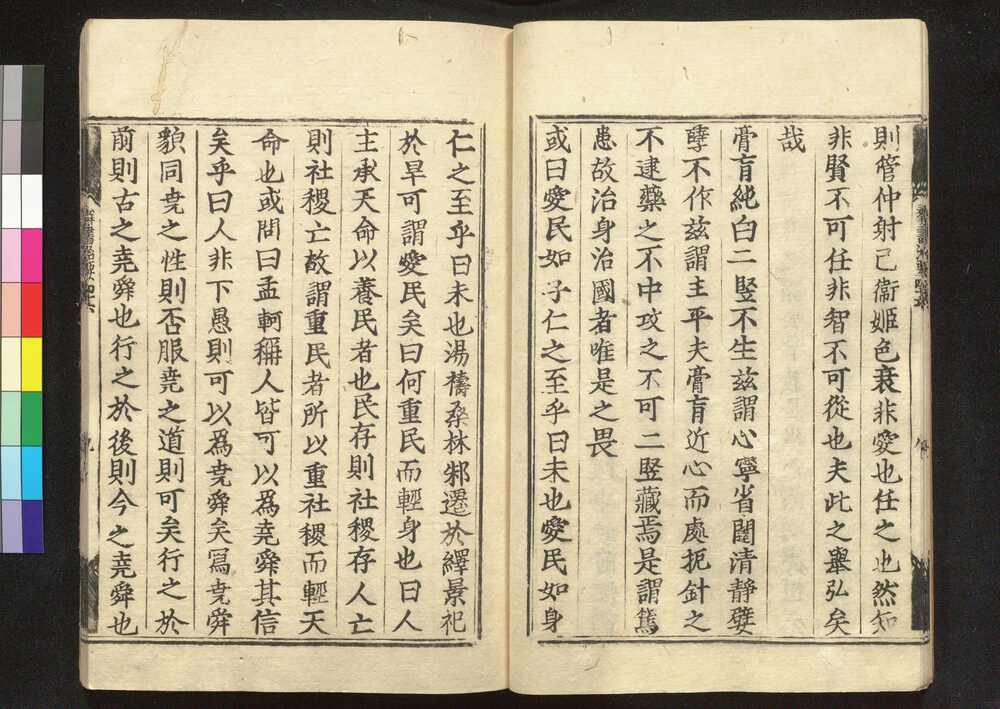 則管仲射己衞姬色衰非愛也任之也然知
非賢不可任非智不可從也夫此之舉弘矣
哉
膏肓純白二竪不生兹謂心寧省闥清靜嬖
孽不作兹謂主平夫膏肓近心而處扼針之
不逮藥之不中攻之不可二竪藏焉是謂篤
患故治身治國者唯是之畏
或曰愛民如子仁之至乎曰未也愛民如身
仁之至乎曰未也湯禱桑林邾遷於繹景祀
於旱可謂愛民矣曰何重民而輕身也曰人
主承天命以養民者也民存則社稷存人亡
則社稷亡故謂重民者所以重社稷而輕天
命也或問曰孟軻稱人皆可以爲堯舜其信
矣乎曰人非下愚則可以爲堯舜矣寫堯舜
貌同堯之性則否服堯之道則可矣行之於
前則古之堯舜也行之於後則今之堯舜也